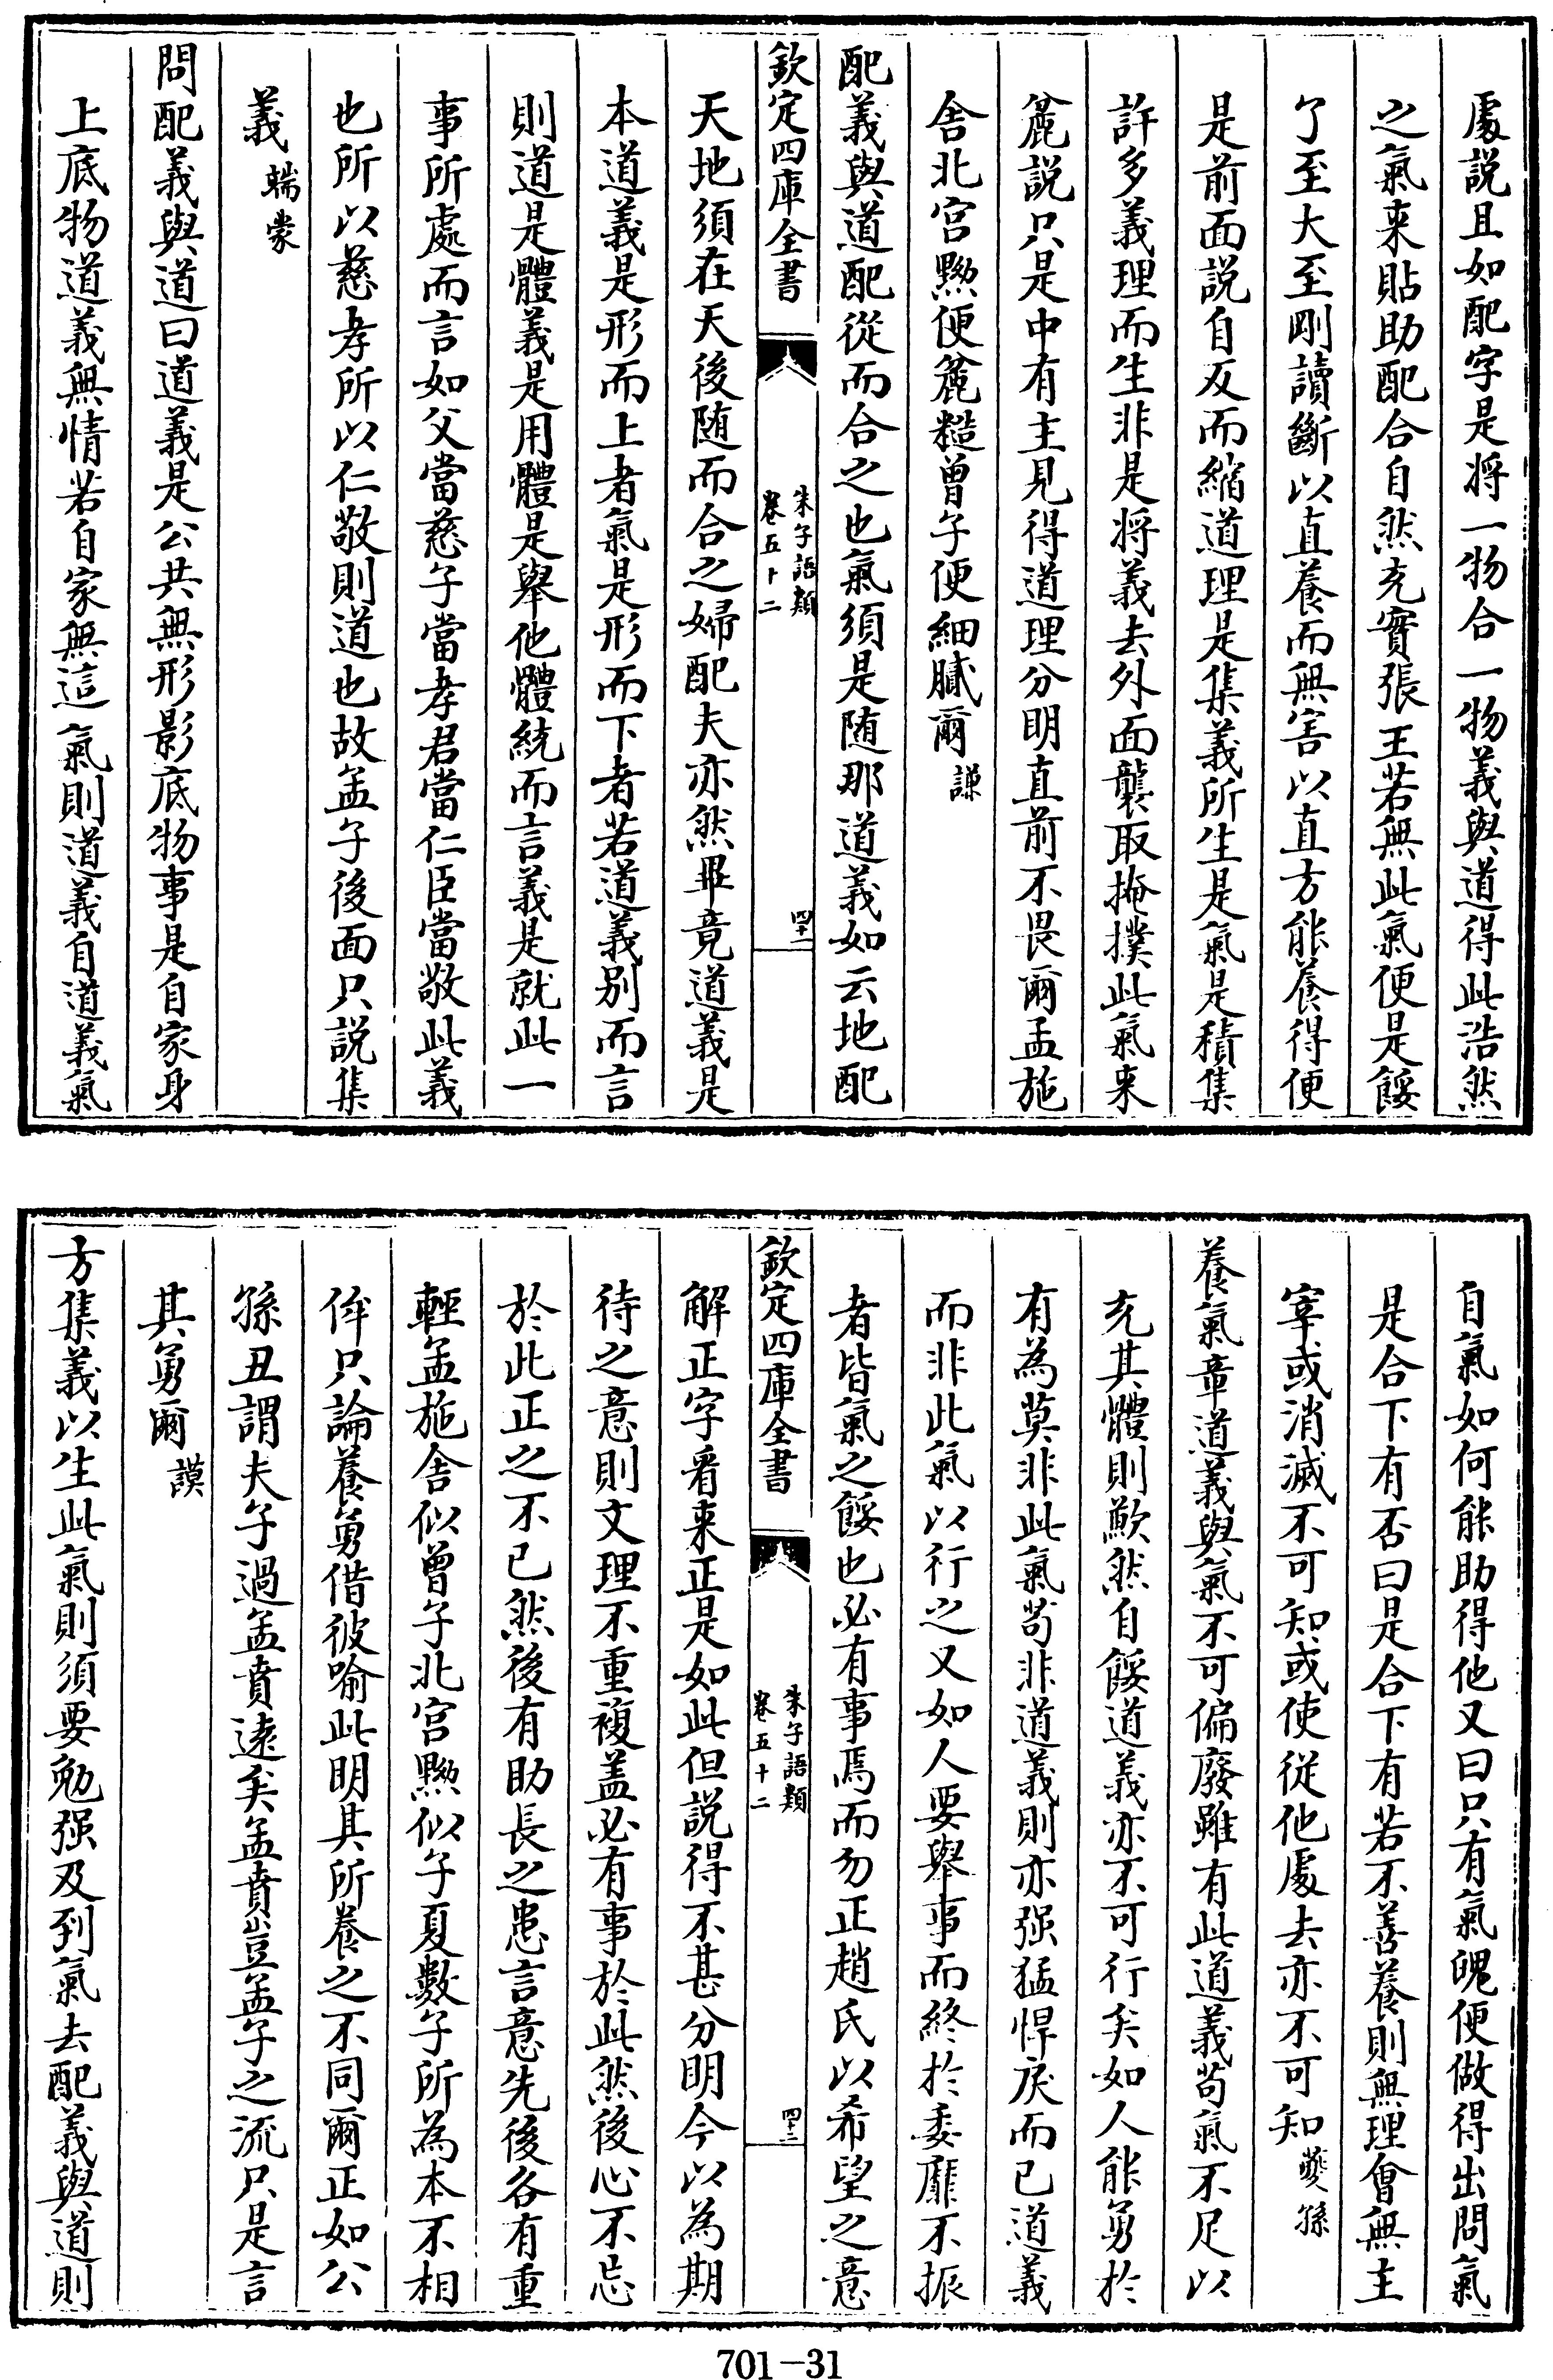 處説且如配字是将一物合一物義與道得此浩然
之氣来貼助配合自然充實張王若無此氣便是餒
了至大至剛讀斷以直養而無害以直方能養得便
是前面説自反而縮道理是集義所生是氣是積集
許多義理而生非是将義去外面襲取掩撲此氣来
麄説只是中有主見得道理分明直前不畏爾孟施
舎北宫黝便麄糙曽子便細膩爾謙
配義與道配從而合之也氣須是随那道義如云地配
欽定四庫全書
朱子語類
卷五十二
四十一
天地須在天後随而合之婦配夫亦然畢竟道義是
本道義是形而上者氣是形而下者若道義别而言
則道是體義是用體是舉他體統而言義是就此一
事所處而言如父當慈子當孝君當仁臣當敬此義
也所以慈孝所以仁敬則道也故孟子後面只説集
義端蒙
問配義與道曰道義是公共無形影底物事是自家身
上底物道義無情若自家無這氣則道義自道義氣
自氣如何能助得他又曰只有氣魄便做得出問氣
是合下有否曰是合下有若不善養則無理㑹無主
宰或消滅不可知或使從他處去亦不可知夔孫
養氣章道義與氣不可偏廢雖有此道義茍氣不足以
充其體則歉然自餒道義亦不可行矣如人能勇於
有為莫非此氣茍非道義則亦强猛悍戾而已道義
而非此氣以行之又如人要舉事而終於委靡不振
者皆氣之餒也必有事焉而勿正趙氏以希望之意
欽定四庫全書
朱子語類
卷五十二
四十二
解正字看来正是如此但説得不甚分明今以為期
待之意則文理不重複盖必有事於此然後心不忘
於此正之不已然後有助長之患言意先後各有重
輕孟施舎似曽子北宫黝似子夏數子所為本不相
侔只論養勇借彼喻此明其所養之不同爾正如公
孫丑謂夫子過孟賁遠矣孟賁豈孟子之流只是言
其勇爾謨
方集義以生此氣則須要勉强及到氣去配義與道則
701-31